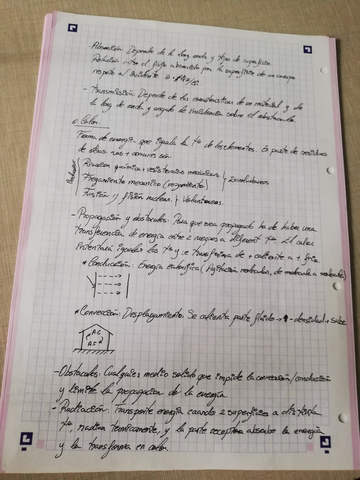 - Absorción: Depende de la long. onda y tipo de superficie
Relación entre el flujo absorvido por la superficie de un cuerpo
respecto al incidente
- Transmisión: Depende de las características de un material y de
la long de onda y angulo de incidencia sobre el obstaculo.
• Calor.
Forma de energía que iguala la Tª de los elementos. Es parte de residuos
de otras mas comunes son:
Reacción química: resistencias
Frotamiento mecanico (rozamiento) Involuntarias
Fusión y fisión nuclear. Voluntarias.
- Propagación y obstaculos: Para que sea propagado ha de haber una
transferencia de energía entre 2 cuerpos a diferent Tª. El calor
intentará igualar las Tª y se transforma de + caliente a + fría
• Conducción: Energía calorifica (Agitación moleculas, de molecula a molecula)
• Convección: Desplazamiento. Se calienta parte fluido → - densidad → sube
- Obstaculos: Cualquier medio solido que impide la convección/conducción
y limite la propagacion de la energía.
- Radiación: Transporte energía cuando 2 superficies a distinta
Tª, radian termicamente, y la parte receptora absorbe la energía
y la transforma en calor.